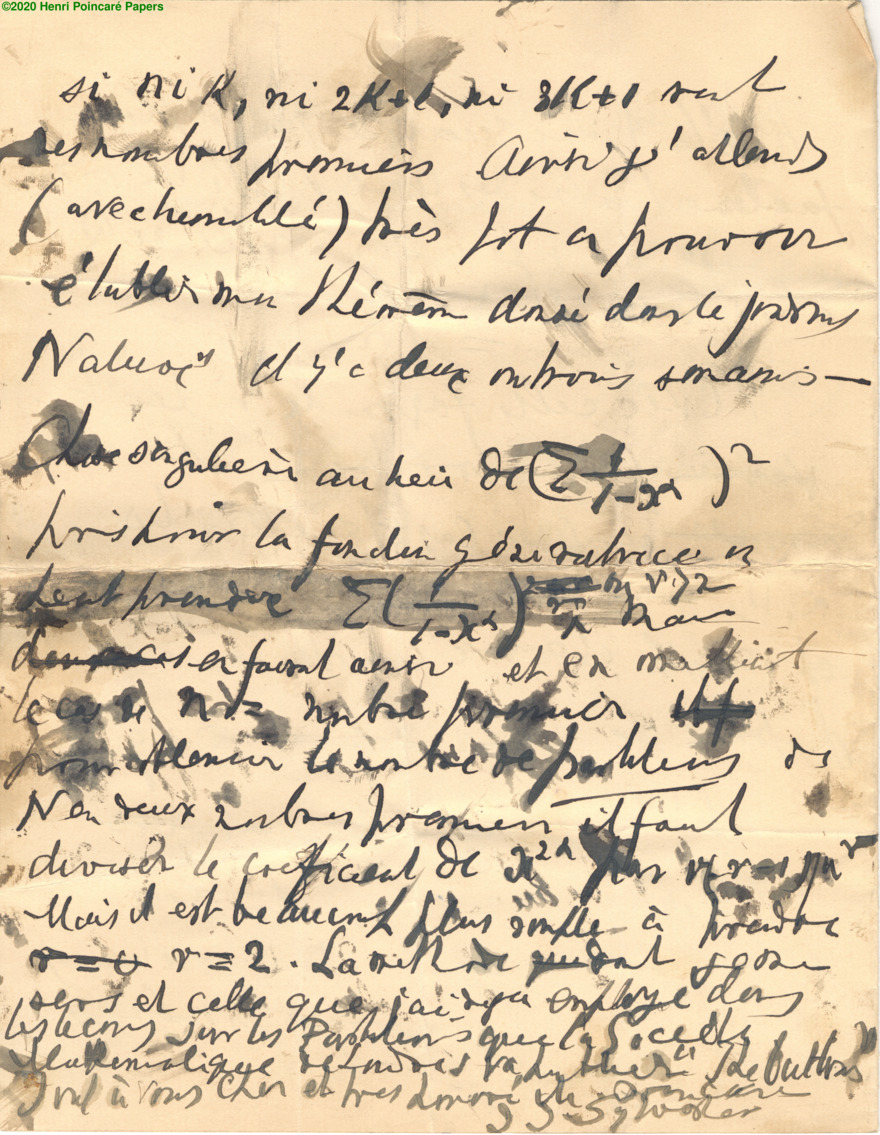 ©2020 Henri Poincaré Papers
si ni K, ni 2K+1, ni 3K+1 sont
des nombres premiers Ainsi j'attends
(avec humilité) très tot a pouvoir
établir mon théorème donné dans le journal
Nature il y'a deux ou trois semaines —
Chose singuliere au lieu de (Σ 1/1-x^n)^2
pris pour la fonction génératrice on
peut prendre Σ(1/1-x^n)
en faisant ainsi et en mettant
le cas de n = nombre premier
pour obtenir le nombre de partitions de
N en deux nombres premiers il faut
diviser le coefficient de x^{2n} par
Mais il est beaucoup plus simple à prendre
r=0 r=2. La methode
sers et celle que j'ai deja employé dans
les leçons sur les Partitions que la Société
Mathematique de Londres va publier
Tout à vous Cher et tres honoré M. Poincaré
J J Sylvester